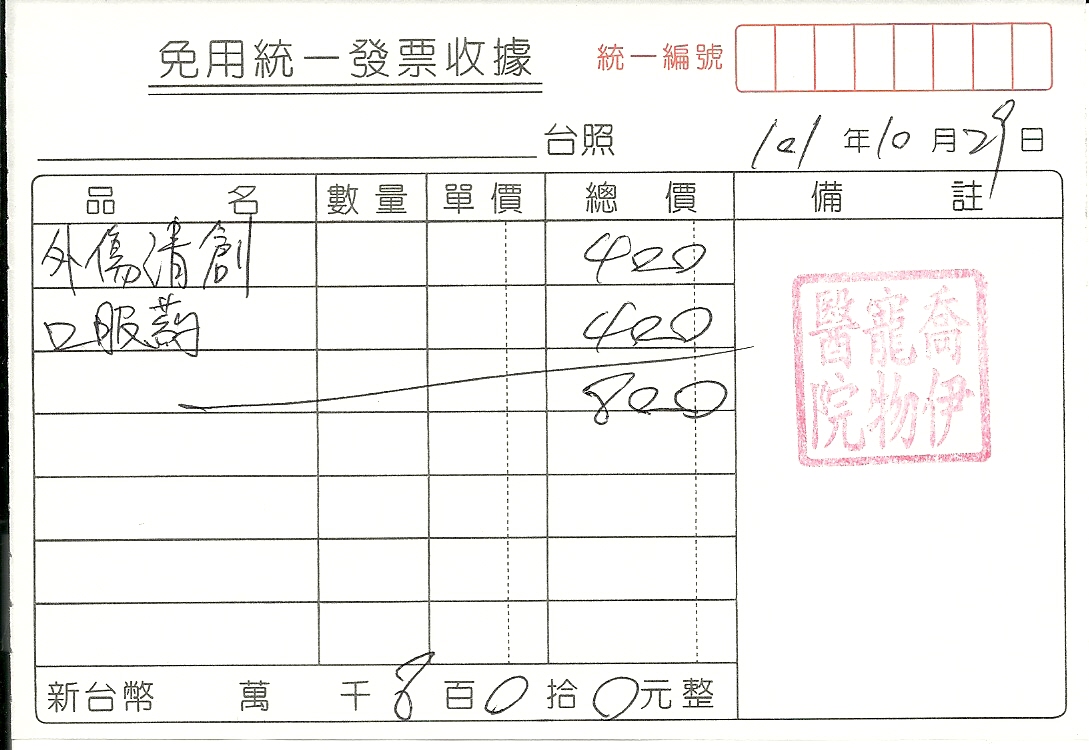 免用統一發票收據 統一編號
台照 101年10月29日
品名 數量 單價 總價 備註
外傷清創 400
口服葯 400
800
喬伊
寵物
醫院
新台幣 萬 千 8百 0拾 0元整